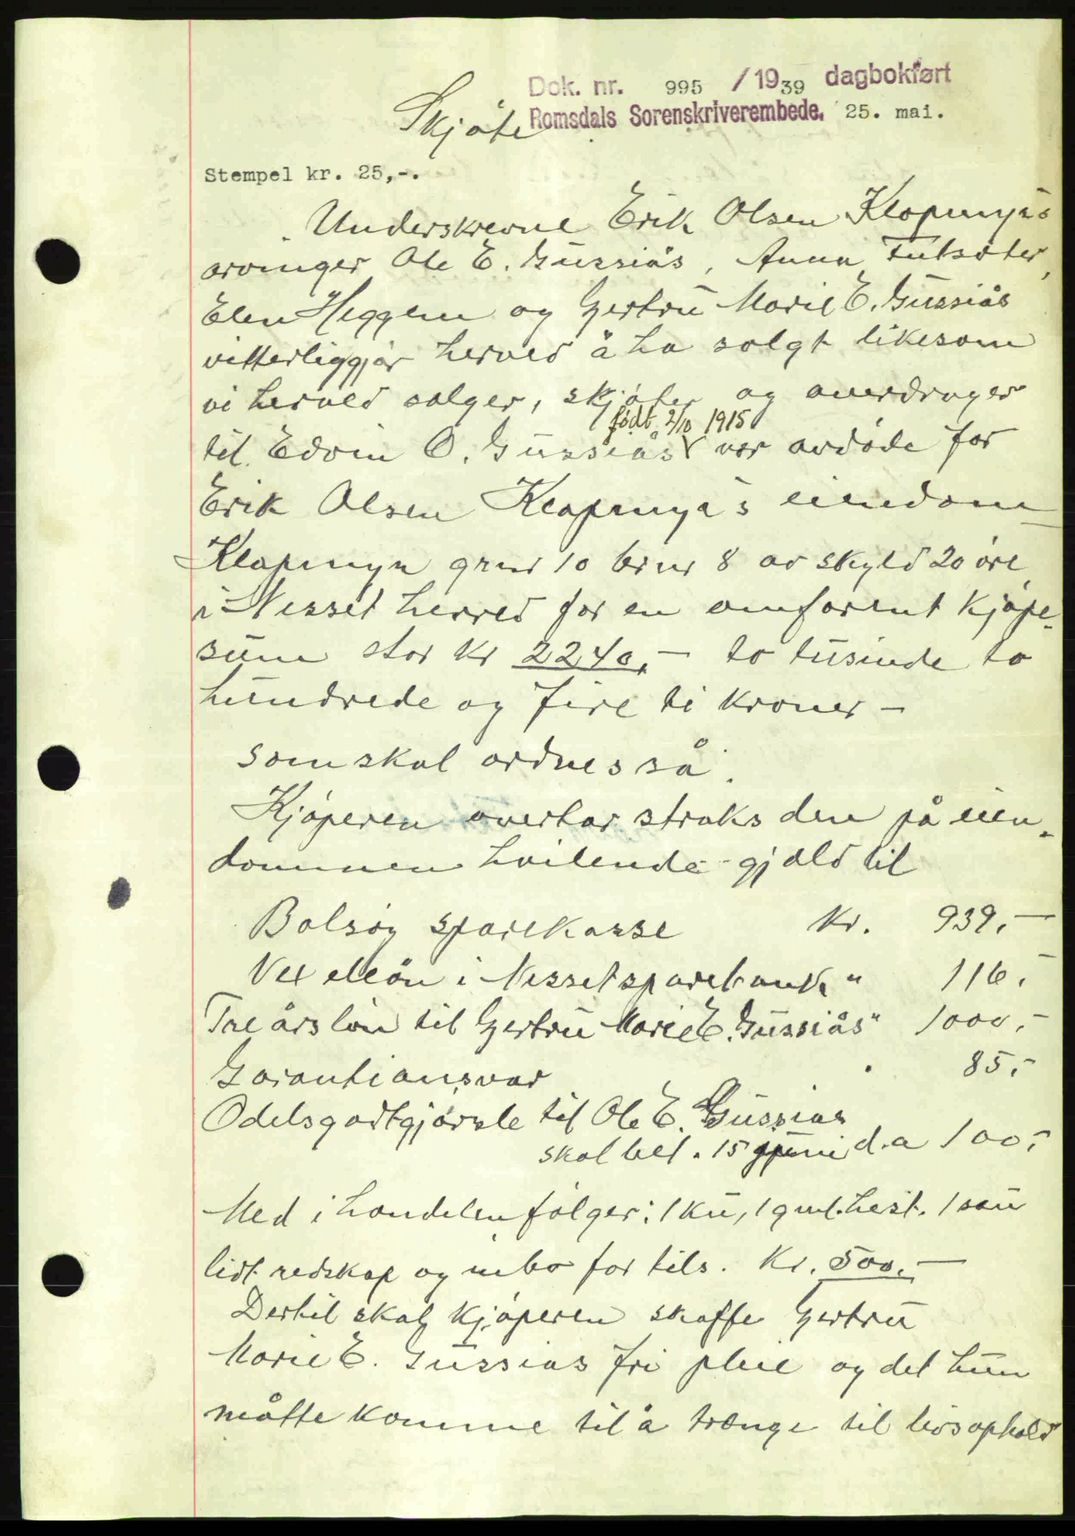 Dok. nr. 995 /1939 dagbokført
Romsdals Sorenskriverembede. 25. mai.
Skjøte
Stempel kr. 25,-.
Underskrevne Erik Olsen Klapmyrs
arvinger Ole E. Gussiås, Anna
Elen Heggem og Gertru Marie E. Gussiås
vitterliggjør herved å ha solgt likesom
vi herved selger, skjøter og overdrager
født 2/10 1915
til Edvin O. Gussiås vor avdøde far
Erik Olsen Klapmyrs eiendom
Klapmyr grnr 10 brnr 8 av skyld 20 øre
i Nesset herred for en omforent kjøpe-
sum stor kr 2240,- to tusinde to
hundrede og fire ti kroner -
som skal ordnes så.
Kjøperen overtar straks den på eien-
dommen hvilende gjæld til
Bolsøy sparekasse kr. 939,-
Vexellån i Nesset sparebank " 116,-
Tre års løn til Gertru Marie E. Gussiås " 1000,-
Garantiansvar 85,-
Odelsgodtgjørsle til Ole E. Gussiås
skal bet. 15 juni d.a 100,-
Med i handelen følger: 1 ku, 1 gml. hest. 1 sau
lidt redskap og inbo for tils. kr. 500,-
Dertil skal kjøperen skaffe Gertru
Marie E. Gussiås fri pleie og det hun
måtte komme til å trænge til livsophold